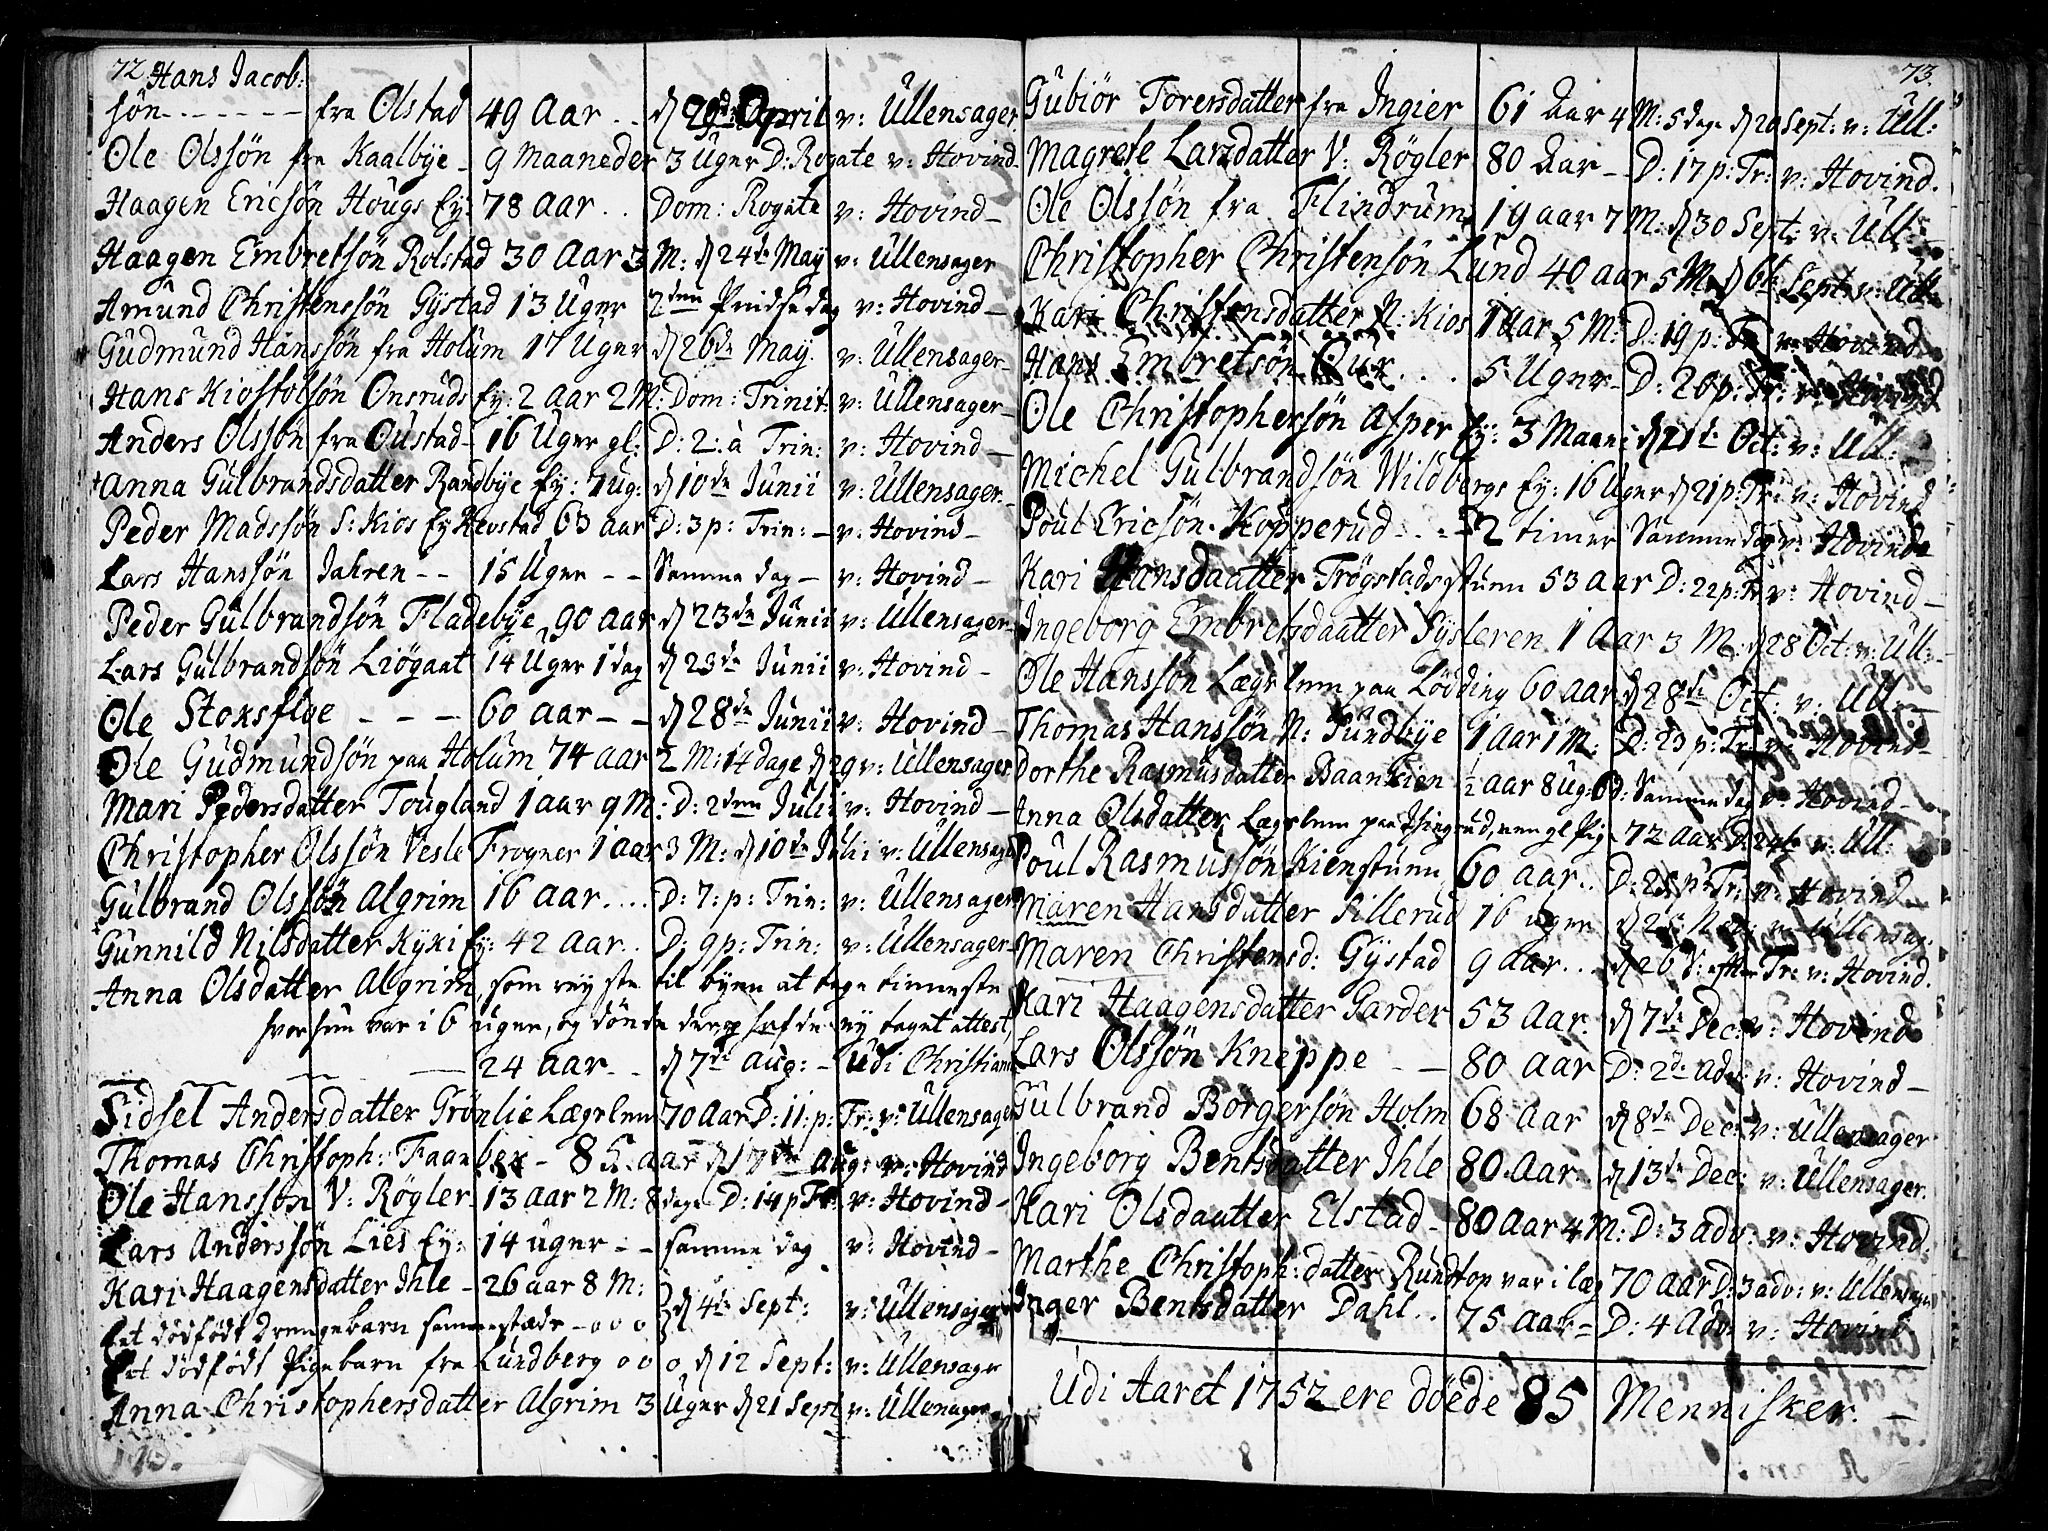 72 Hans Jacob:
søn - - - - - fra Olstad 49 Aar . . d 29de April v: Ullensager.
Ole Olssøn fra Kaalbye - 9 Maaneder 3 Uger D: Rogate v: Hovind
Haagen Ericsøn Hougs Ey: 78 aar . . Dom: Rogate v: Hovind -
Haagen Embretsøn Rolstad 30 Aar 3 M: d 24de May v: Ullensager
Amund Christenssøn Gystad 13 Uger 2den Pindsedag v: Hovind -
Gudmund Hanssøn fra Holum 17 Uger d 26de May. v: Ullensager -
Hans Kiostolsøn Onsruds Ey: 2 aar 2 M: Dom: Trinit: v: Ullensager -
Anders Olssøn fra Oustad - 16 Uger gl: D: 2: à Trin: v: Hovind -
Anna Gulbrandsdatter Randbye Ey: 7 ug: d 10de Junii v: Ullensager. -
Peder Madssøn S: Kios Ey Hevstad 63 aar D: 3 p: Trin: - v: Hovind -
Lars Hanssøn Jahren - - 15 Uger - - Samme dag - v: Hovind -
Peder Gulbrandsøn Fladebye 90 aar d 23de Junii v: Ullensager -
Lars Gulbrandsøn Liøgaat 14 Uger 1 dag d 23de Junii v: Hovind -
Ole Stoksfloe - - - 60 aar - - d 28de Junii v: Hovind -
Ole Gudmundsøn paa Holum 74 aar 2 M: 14 dage d 29 v: Ullensager
Mari Pedersdatter Tougland 1 aar 9 M: D: 2den Julii v: Hovind -
Christopher Olssøn Vesle Frogner 1 aar 3 M: d 10de Julii v: Ullensager
Gulbrand Olssøn Algrim 16 aar . . . . D: 7: p: Trin: v: Ullensager
Gunnild Nilsdatter Kyki Ey: 42 aar . . D: 9 p: Trin: v: Ullensager -
Anna Olsdatter Algrim, som reyste til byen at tage tienneste
hvor hun var i 6 uger, og døde der hafde ey taget attest,
24 aar - - d 7de aug: - Udi Christiania
Sidsel Andersdatter Grønlie Lægslem 70 Aar D: 11: p: Tr: v: Ullensager
Thomas Christoph: Faanbek - 85 aar d 17de aug: v: Hovind
Ole Hanssøn V: Røgler - 13 aar 2 M: 8 dage D: 14 p Tr: v: Hovind -
Lars Anderssøn Lies Ey: 14 uger - - samme dag v: Hovind -
Kari Haagensdatter Ihle - 26 aar 8 M: d 4de Sept: v: Ullensager
Et dødfødt drengebarn sammestæds - o o o
Et dødfødt Pigebarn fra Lundberg o o o d 12 Sept: v: Ullensager
Anna Christophersdatter Algrim 3 Uger d 21 Sept v: Ullensager
73.
Gubiør Toresdatter fra Ingier 61 Aar 4 M: 5 dage d 20 Sept: v: Ull:
Magrete Larsdatter V: Røgler 80 Aar - D: 17 p: Tr: v: Hovind.
Ole Olssøn fra Flindrum 19 aar 7 M: d 30 Sept: v: Ull:
Christopher Christensøn Lund 40 aar 5 M: d 6te Sept: v: Ull:
Kari Christensdatter N: Kios 1 aar 5 M: D: 19 p: Tr v: Hovind
Hans Embretsøn Kux . . . 5 Uger - D: 20 p: Tr: v: Hovind
Ole Christophersøn Asper Ey: 3 Maan: d 21de Oct: v: Ull:
Michel Gulbrandsøn Wildbergs Ey: 16 Uger d 21 p: Tr: v: Hovind
Poul Ericsøn Kopperud - - - 2 timer Samme dag v: Hovind
Kari Hansdaatter Trøgstadsstuen 53 aar D: 22 p: Tr v: Hovind -
Ingeborg Embretsdaatter Sysleren 1 Aar 3 M: d 28 Oct: v: Ull: -
Ole Hanssøn Lægslem paa Lødding 60 aar d 28de Oct: v: Ull: -
Thomas Hanssøn N: Sundbye 1 aar 1 M: D: 23 p: Tr: v: Hovind -
Dorthe Rasmusdatter Baankien ½ aar 8 ug: D: Samme dag v: Hovind -
Anna Olsdatter Lægslem paa Isingrud, en gl Pig 72 aar D: 24de v: Ull:
Poul Rasmussøn Kienstuen 60 aar . . D: 25 p: Tr: v: Hovind
Maren Hansdatter Sillerud 16 uger v: Ullensag:
Maren Christensd: Gystad 9 aar . . d 26 S: efter Tr: v: Hovind.
Kari Haagensdatter Garder 53 Aar. d 7de Dec: v: Hovind
Lars Olssøn Kneppe - - 80 aar D: 2de adv: v: Hovind -
Gulbrand Børgersøn Holm 68 aar d 8de Dec: v: Ullensager
Ingeborg Bentsdatter Ihle 80 Aar - d 13de Dec: v: Ullensager.
Kari Olsdaatter Elstad - 80 Aar 4 M: D: 3 adv: v: Hovind.
Marthe Christoph: datter Rundtop var i læg 70 aar D: 3 adv: v: Ullensager
Inger Bentsdatter Dahl . . 75 aar - D: 4 Adv: v: Hovind
Udi Aaret 1752 ere døede 85 Mennisker. -